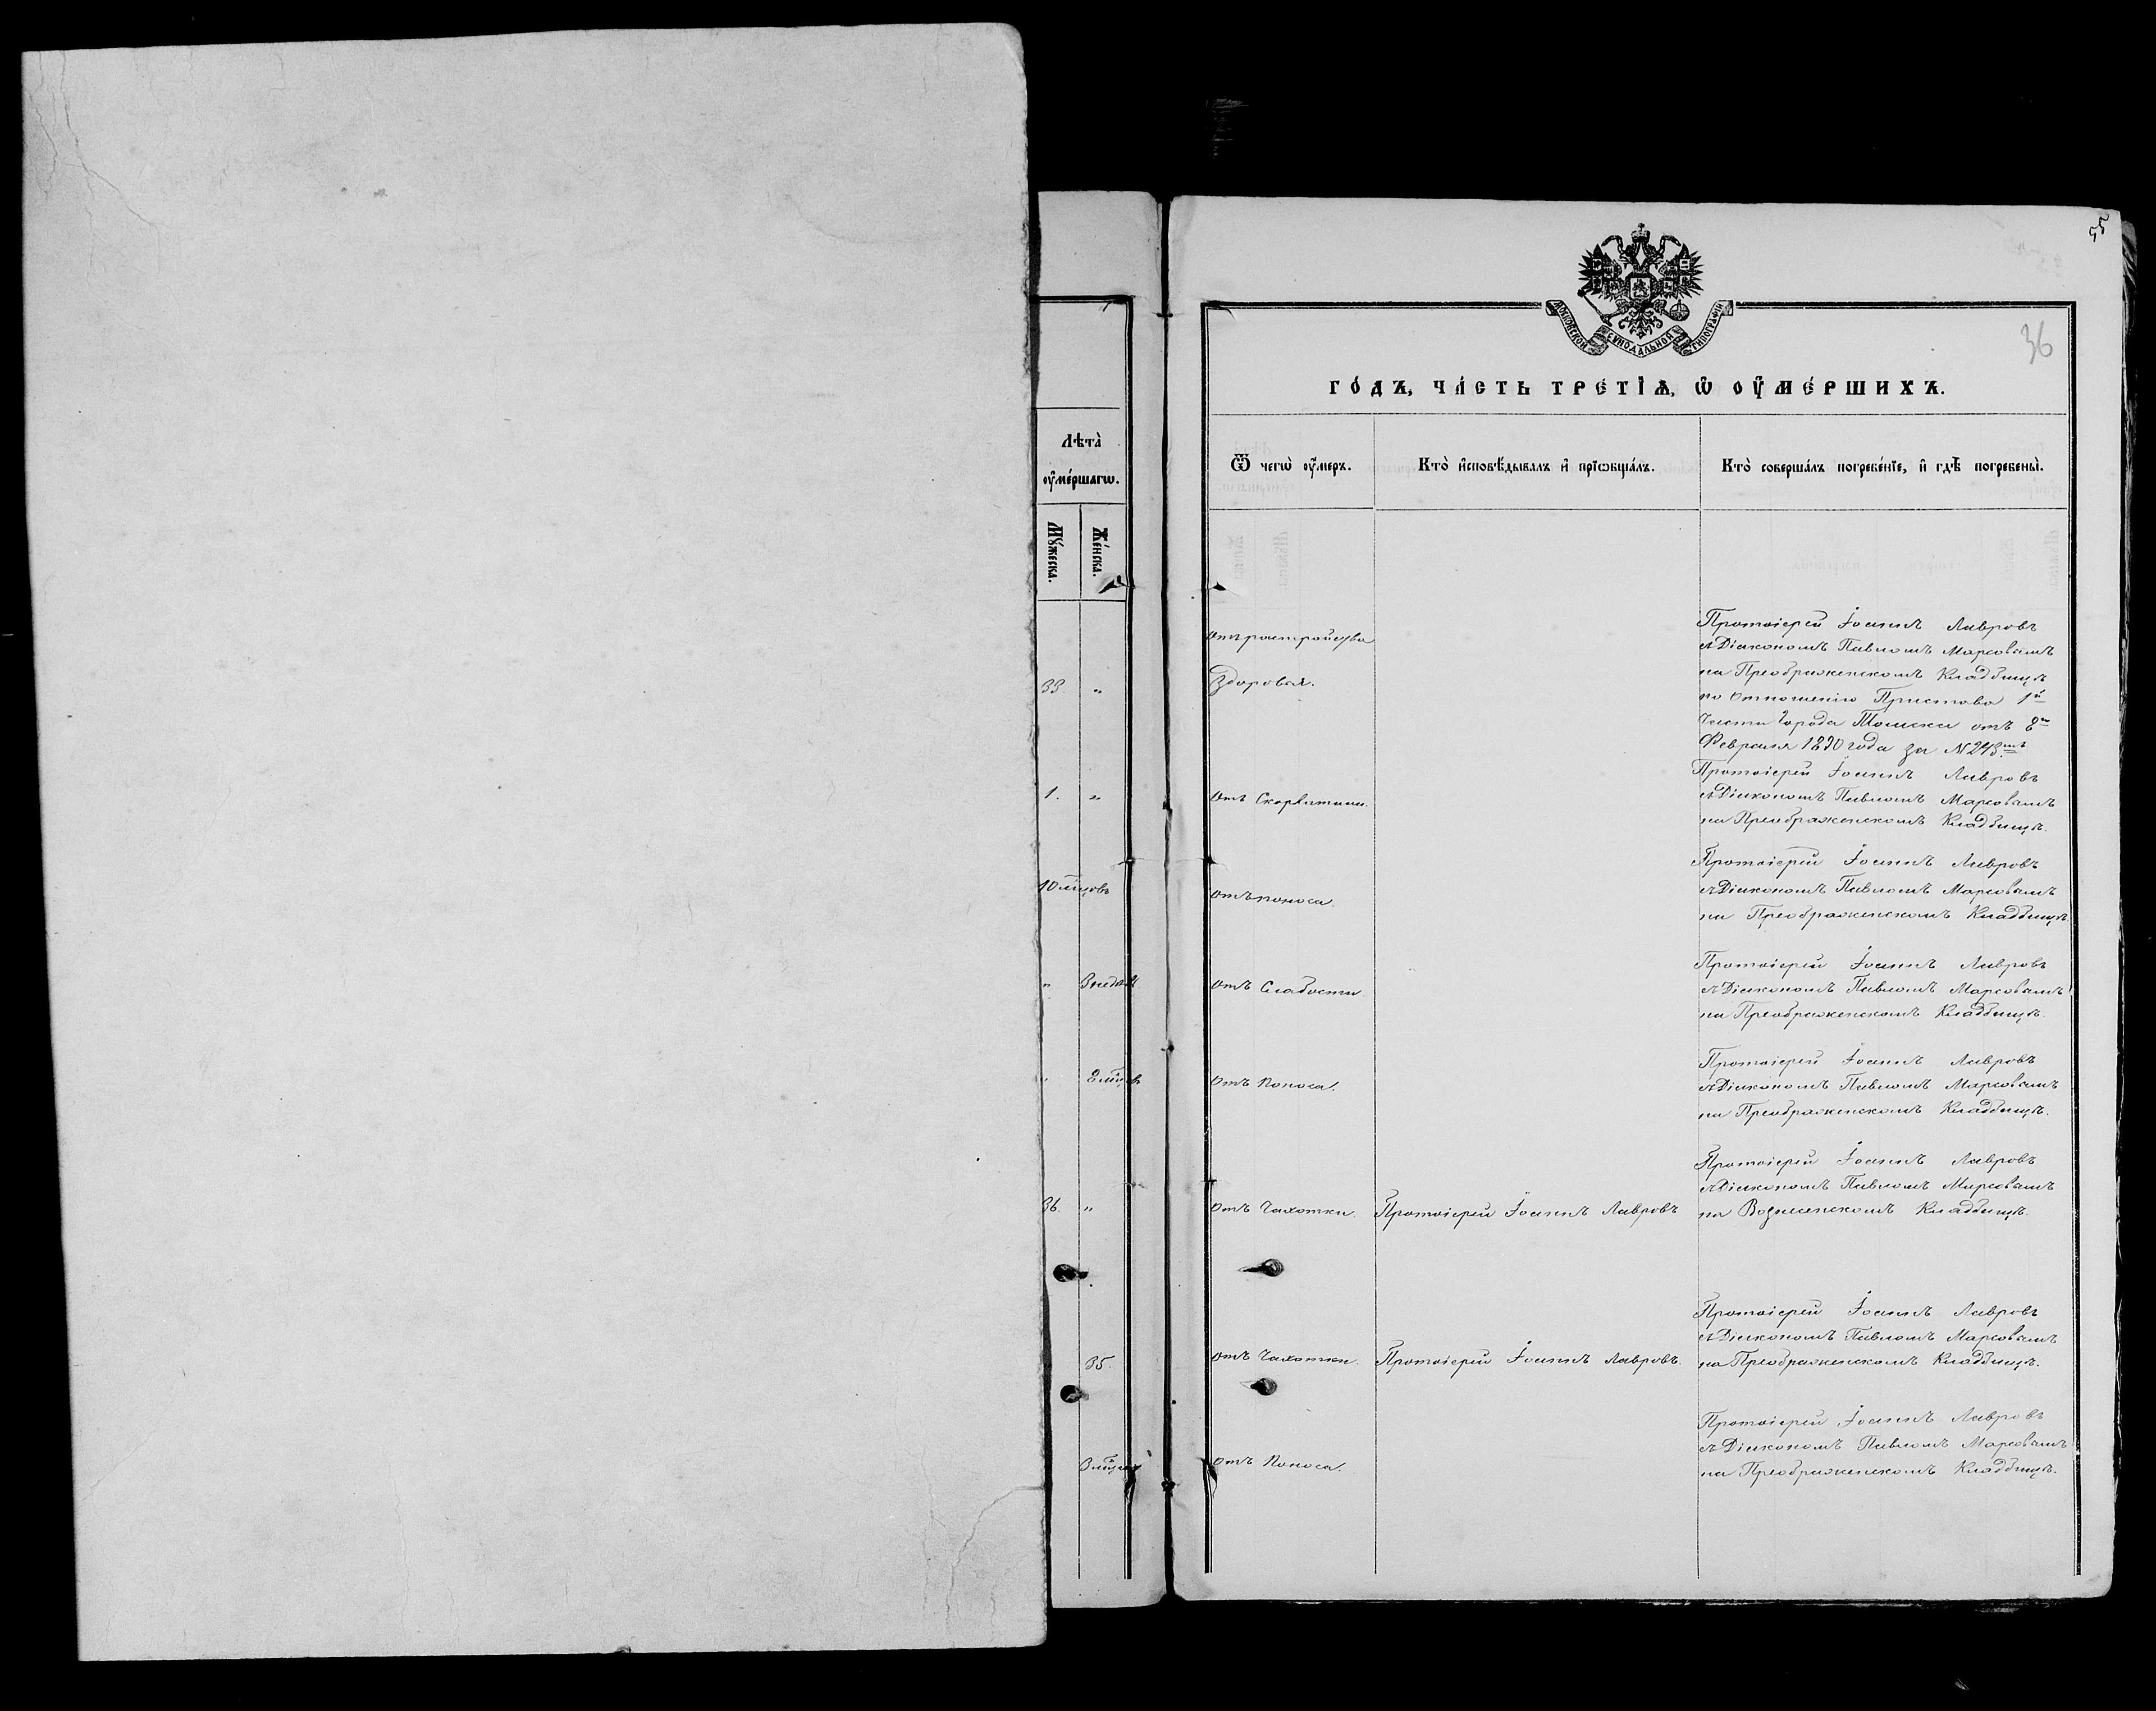 55
МОСКОВСКОЙ СѴНОДАЛЬНОЙ ТИПОГРАФІИ
36
го́дъ, ча́сть тре́тїѧ, ѡ҆ оу҆ме́ршихъ.
Лѣта̀
оу҆ме́ршагѡ.
Мꙋ́жеска.
Же́нска.
Ѿ чегѡ̀ оу҆́меръ.
Кто̀ и҆сповѣ́дывалъ и҆ прїѡбща́лъ.
Кто̀ соверша́лъ погребе́нїе, и҆ гдѣ̀ погребены̀.
33. "
Отъ растройства
Здоровья.
Протоіерей Іоаннъ Лавровъ
съ Діакономъ Павломъ Марсовымъ
на Преображенскомъ Кладбищѣ
по отношенію Пристава 1й
Части города Томска отъ 8го
Февраля 1890 года за №
1. "
Отъ Скорлатины.
Протоіерей Іоаннъ Лавровъ
съ Діакономъ Павломъ Марсовымъ
на Преображенскомъ Кладбищѣ.
10 мцовъ
Отъ поноса.
Протоіерей Іоаннъ Лавровъ
съ Діакономъ Павломъ Марсовымъ
на Преображенскомъ Кладбищѣ.
" 3 недѣл
Отъ Слабости
Протоіерей Іоаннъ Лавровъ
съ Діакономъ Павломъ Марсовымъ
на Преображенскомъ Кладбищѣ.
" 2 мцов
Отъ Поноса.
Протоіерей Іоаннъ Лавровъ
съ Діакономъ Павломъ Марсовымъ
на Преображенскомъ Кладбищѣ.
36. "
Отъ Чахотки.
Протоіерей Іоаннъ Лавровъ
Протоіерей Іоаннъ Лавровъ
съ Діакономъ Павломъ Марсовымъ
на Вознесенскомъ Кладбищѣ.
35.
Отъ Чахотки.
Протоіерей Іоаннъ Лавровъ.
Протоіерей Іоаннъ Лавровъ
съ Діакономъ Павломъ Марсовымъ
на Преображенскомъ Кладбищѣ.
3 мцов
Отъ Поноса.
Протоіерей Іоаннъ Лавровъ
съ Діакономъ Павломъ Марсовымъ
на Преображенскомъ Кладбищѣ.